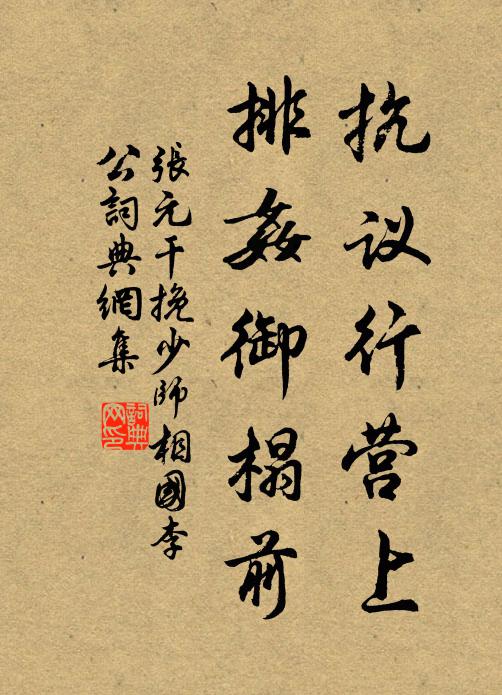 抗议行营上
排姦御榻前
張元干挽少師相國李
公詞典網集
詞典
网印